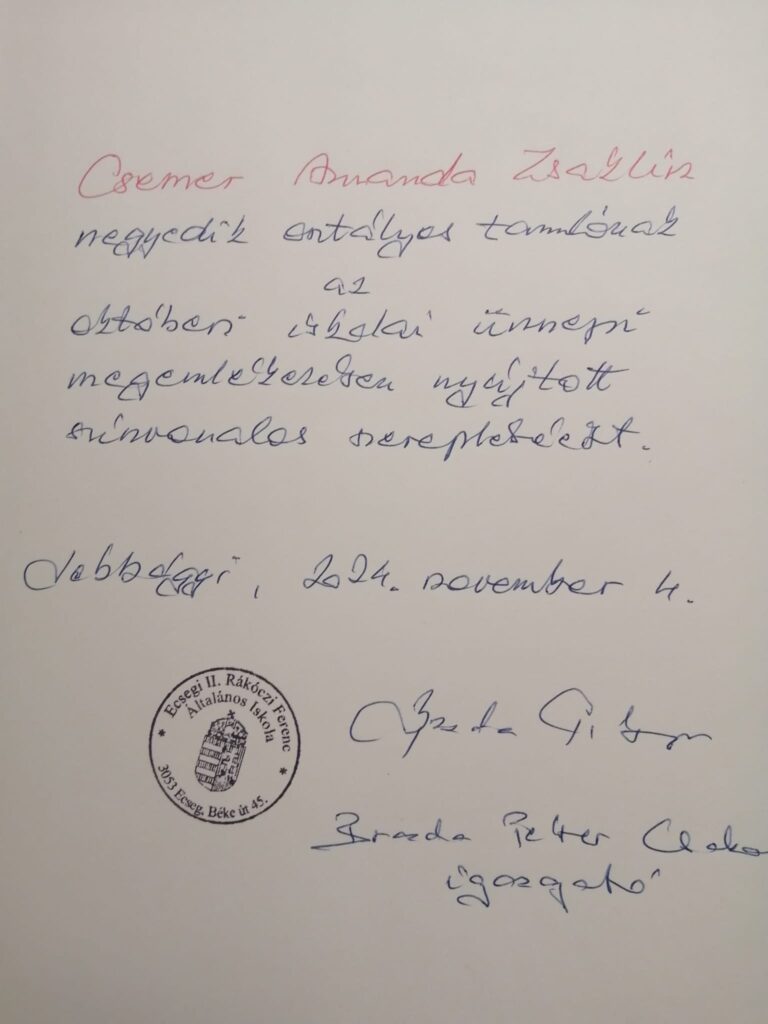 Csemer Amanda Zsaklin
negyedik osztályos tanulónak
az
októberi iskolai ünnepi
megemlékezésen nyújtott
színvonalas szerepléséért.
Jobbágyi, 2024. november 4.
Ecsegi II. Rákóczi Ferenc
Általános Iskola
3053 Ecseg, Béke út 45.
Brezda Péter
igazgató